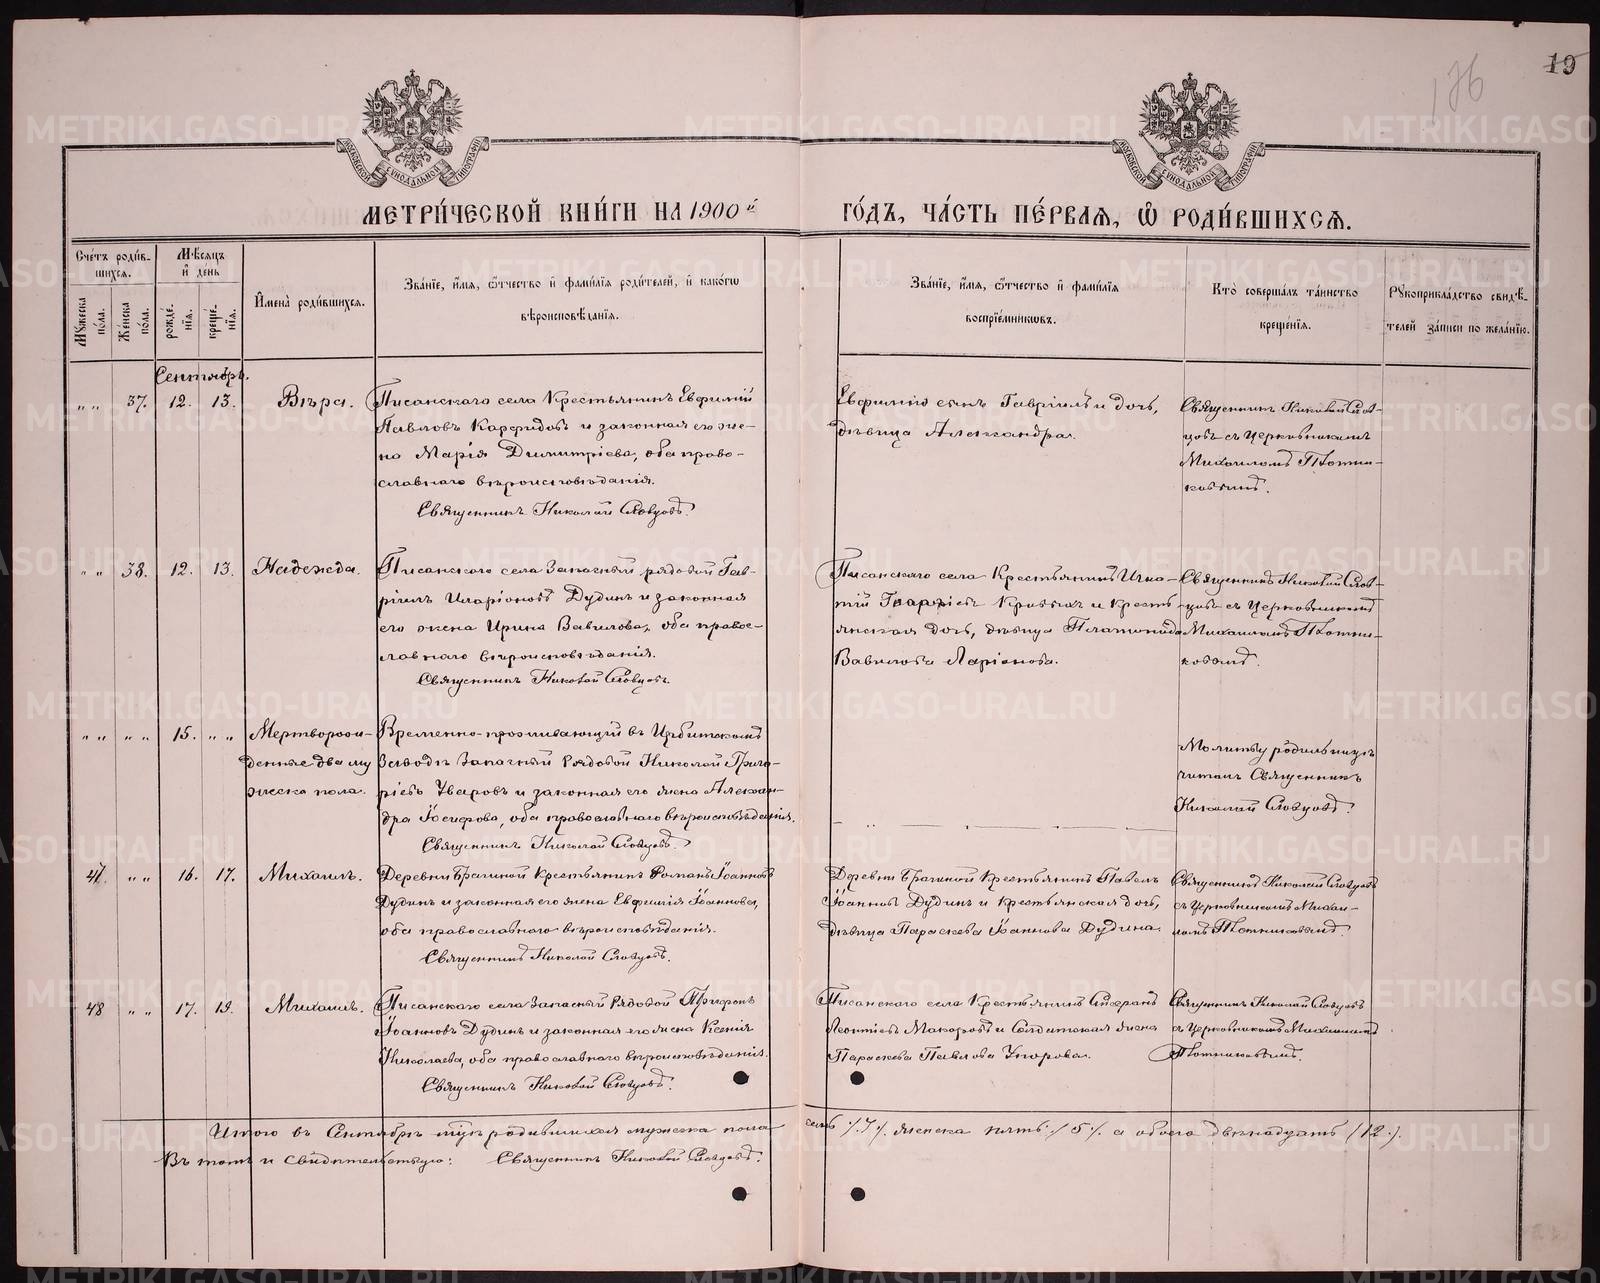 19
176
МОСКОВСКОЙ СУНОДАЛЬНОЙ ТИПОГРАФИИ
МОСКОВСКОЙ СУНОДАЛЬНОЙ ТИПОГРАФИИ
МЕТРИ́ЧЕСКОЙ КНИ́ГИ НА 1900й
ГО́ДЪ, ЧА́СТЬ ПЕ́РВАѦ, Ѡ҆ РОДИ́ВШИХСѦ.
Сче́тъ роди́в-
шихсѧ.
Мꙋжеска по́ла.
Же́нска по́ла.
Мѣ́сѧцъ и҆ де́нь
рожде́-
нїѧ.
креще́-
нїѧ.
И҆мена̀ роди́вшихсѧ.
Зва́нїе, и҆́мѧ, ѻ҆́тчество и҆ фами́лїѧ роди́телей, и҆ како́гѡ
вѣроисповѣ́данїѧ.
Зва́нїе, и҆́мѧ, ѻ҆́тчество и҆ фами́лїѧ
воспрїе́мникѡвъ.
Кто̀ соверша́лъ та́инство
креще́нїѧ.
Рꙋкоприкла́дство свидѣ́-
телей за́писи по жела́нїю.
Сентябрь.
„ „ 37. 12. 13. Вѣра.
Писанскаго села Крестьянинъ Евфимій
Павловъ и законная его же-
на Марія Димитріева, оба право-
славнаго вѣроисповѣданія.
Священникъ Николай Словцовъ.
Евфимію сынъ Гавріилъ и дочь,
дѣвица Александра.
Священникъ Николай Слов-
цовъ съ Церковникомъ
Михаиломъ Плотни-
ковымъ.
„ „ 38. 12. 13. Надежда.
Писанскаго села Запасный рядовой Гав-
ріилъ Иларіоновъ Дудинъ и законная
его жена Ирина Вавилова, оба право-
славнаго вѣроисповѣданія.
Священникъ Николай Словцовъ.
Писанскаго села Крестьянинъ Игна-
тій и кресть-
янская дочь, дѣвица Платонида
Вавилова Ларіонова.
Священникъ Николай Слов-
цовъ съ Церковникомъ
Михаиломъ Плотни-
ковымъ.
„ „ „ „ 15. „ „ Мертворож-
денные два му-
жеска пола.
Временно-проживающій въ Ирбитскомъ
Заводѣ Запасный Рядовой Николай Григо-
ріевъ Уваровъ и законная его жена Алексан-
дра Іосифова, оба православнаго вѣроисповѣданія.
Священникъ Николай Словцовъ.
Молитву родильницѣ
читалъ Священникъ
Николай Словцовъ.
47. „ „ 16. 17. Михаилъ.
Деревни Брагиной Крестьянинъ Романъ Іоанновъ
Дудинъ и законная его жена Евфимія Іоаннова,
оба православнаго вѣроисповѣданія.
Священникъ Николай Словцовъ.
Деревни Брагиной Крестьянинъ Павелъ
Іоанновъ Дудинъ и Крестьянская дочь,
дѣвица Параскева Іоаннова Дудина.
Священникъ Николай Словцовъ
съ Церковникомъ Михаи-
ломъ Плотниковымъ.
48 „ „ 17. 19. Михаилъ.
Писанскаго села Запасный Рядовой Трифонъ
Іоанновъ Дудинъ и законная его жена Ксенія
Николаева, оба православнаго вѣроисповѣданія.
Священникъ Николай Словцовъ.
Писанскаго села Крестьянинъ Стефанъ
Леонтіевъ Макаровъ и Солдатская жена
Параскева Павлова Упорова.
Священникъ Николай Словцовъ
съ Церковникомъ Михаиломъ
Плотниковымъ.
Итого въ Сентябрѣ м-цѣ родившихся мужеска пола
семь /7/, женска пять /5/ а обоего двѣнадцать (12).
Въ томъ и свидѣтельствую: Священникъ Николай Словцовъ.
METRIKI.GASO-URAL.RU